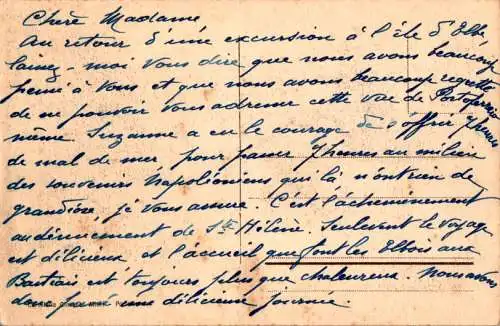 Chère Madame
Au retour d'une excursion à l'île d'Elbe
laissez-moi vous dire que nous avons beaucoup
pensé à vous et que nous avons beaucoup regretté
de ne pouvoir vous adresser cette vue de Portoferraio
même. Suzanne a eu le courage de s'offrir 7 heures
de mal de mer, pour passer 7 heures au milieu
des souvenirs Napoléoniens qui là n'ont rien de
grandiose, je vous assure. C'est l'acheminement
au dénuement de Ste Hélène. Seulement le voyage
est délicieux et l'accueil que font les Elbois aux
Bastiais est toujours plus que chaleureux. Nous avons
donc passé une délicieuse journée.